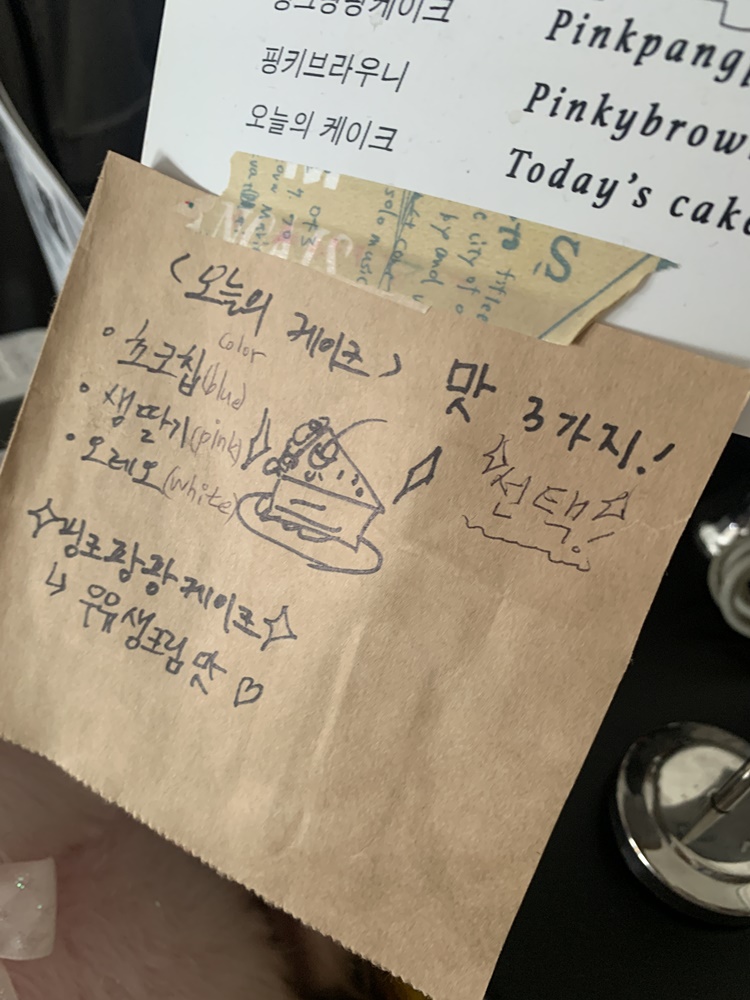 핑크팡팡케이크 Pinkpang
핑키브라우니 Pinkybrow
오늘의 케이크 Today's cake
S
title
city of o
by and
solo music
<오늘의 케이크> 맛 3가지!
color
• 초코칩(blue)
• 생딸기(pink)
• 오레오(white)
선택!
핑크팡팡케이크
↳ 우유생크림 맛 ♡